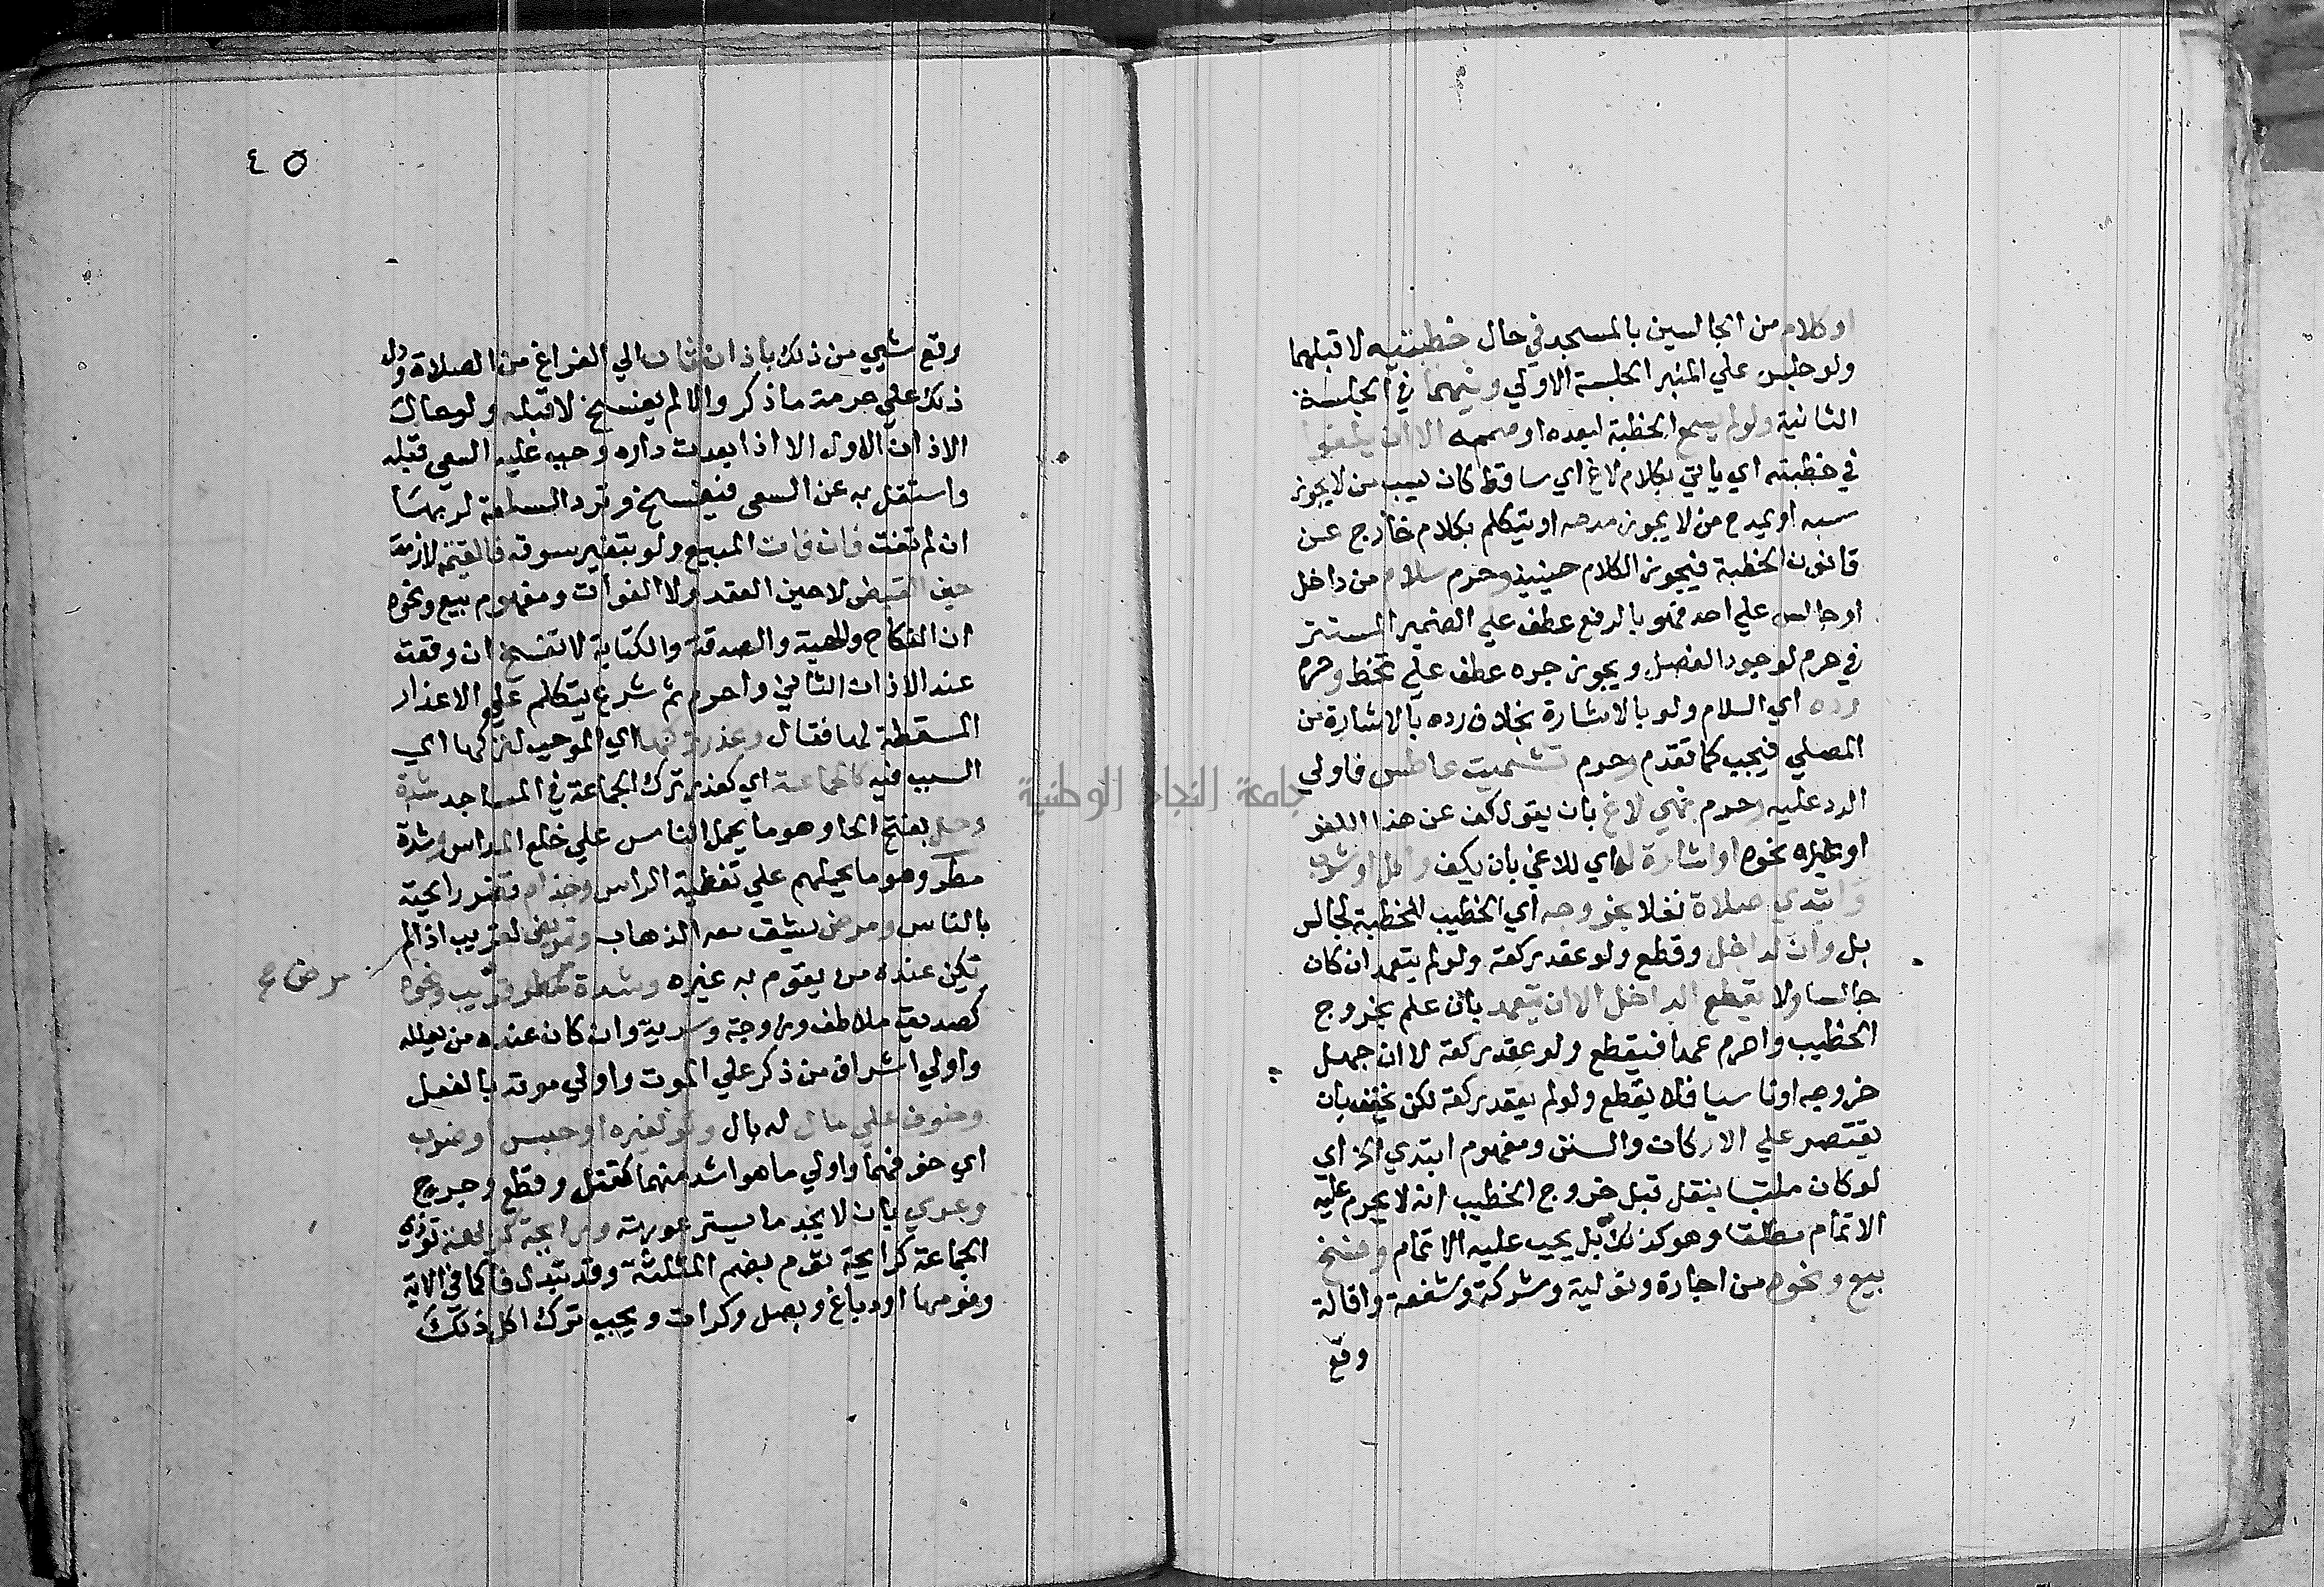 او كلام من الجالسين بالمسجد في حال خطبتيه لا قبلهما
ولو جلس علي المنبر الجلسة الاولي وبينهما في الجلسة
الثانية ولو لم يسمع الخطبة لبعده او صممه الا ان يلغوا
في خطبته اي ياتي بكلام لاغ اي ساقط كان يسب من لا يجوز
سبه او يمدح من لا يجوز مدحه او يتكلم بكلام خارج عن
قانون الخطبة فيجوز الكلام حينيذ وحرم سلام من داخل
او جالس علي احد فهو بالرفع عطف علي الضمير المستتر
في حرم لوجود الفصل ويجوز جره عطف علي تخط وحرم
رده اي السلام ولو بالاشارة بخلاف رده بالاشارة من
المصلي فيجب كما تقدم وحرم تشميت عاطس فاولي
الرد عليه وحرم نهي لاغ بان يقول كف عن هذا اللغو
او غيره نحوه او اشارة له اي للاغي بان يكف واكل او شرب
وابتدي صلاة نفلا بخروجه اي الخطيب للخطبة لجالس
بل وان لداخل وقطع ولو عقد ركعة ولو لم يتعمد ان كان
جالسا ولا يقطع الداخل الا ان يتعمد بان علم بخروج
الخطيب واحرم عمدا فيقطع ولو عقد ركعة لا ان جهل
خروجه او ناسيا فلا يقطع ولو لم يعقد ركعة لكن يخفف بان
يقتصر علي الاركان والسنن ومفهوم ابتدي الخ اي
لو كان ملتبسا بنفل قبل خروج الخطيب انه لا يحرم عليه
الاتمام مطلقا وهو كذلك بل يجب عليه الاتمام وفسخ
بيع ونحوه من اجارة وتولية وشركة وشفعة واقالة
وقع
٤٥
وقع شيي من ذلك باذان ثان الي الفراغ من الصلاة ودل
ذلك علي حرمة ما ذكر والا لم يفسخ لا قبله ولو حال
الاذان الاول الا اذا بعدت داره وجب عليه السعي قبله
واستقل به عن السعي فيفسخ وترد السلعة لربها
ان لم تفت فان فات المبيع ولو بتغير سوقه فالقيمة لازمة
حين القبض لا حين العقد ولا الفوات ومفهوم بيع ونحوه
ان النكاح والهبة والصدقة والكتابة لا تفسخ ان وقعت
عند الاذان الثاني واحرم ثم شرع يتكلم علي الاعذار
المسقطة لها فقال وعذر تركها اي الموجب لتركها اي
السبب فيه كالجماعة اي كعذر ترك الجماعة في المساجد شدة
وحل بفتح الحاو هو ما يحمل الناس علي خلع المداس وشدة
مطر وهو ما يحملهم علي تغطية الراس وجذام تضر رايحته
بالناس ومرض يشق معه الذهاب وتمريض لقريب اذا لم
يكن عنده من يقوم به غيره وشدة قريب ونحوه
مرض ع
كصديق ملاطف وزوجة وسرية وان كان عنده من يعلله
واولي اشراف من ذكر علي الموت واولي موته بالفعل
وخوف علي مال له بال ولو لغيره او حبس او ضرب
اي خوفهما واولي ما هو اشد منهما كقتل وقطع وجرح
وعري بان لا يجد ما يستر عورته ورايحة كريهة توذي
الجماعة كرايحة ثوم بضم المثلثة وقد تبدل فا كما في الاية
وفومها او دباغ وبصل وكرات ويجب ترك اكل ذلك
جامعة النجاح الوطنية